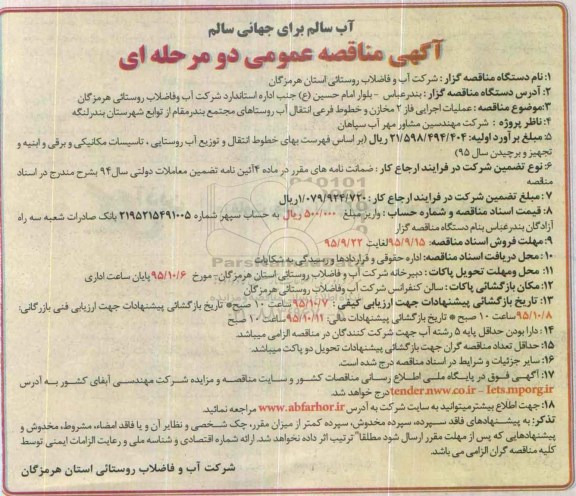 آب سالم برای جهانی سالم
آگهی مناقصه عمومی دو مرحله ای
۱: نام دستگاه مناقصه گزار : شرکت آب و فاضلاب روستائی استان هرمزگان
۲: آدرس دستگاه مناقصه گزار : بندرعباس - بلوار امام حسین (ع) جنب اداره استاندارد شرکت آب وفاضلاب روستائی هرمزگان
۳:موضوع مناقصه : عملیات اجرایی فاز ۲ مخازن و خطوط فرعی انتقال آب روستاهای مجتمع بندرمقام از توابع شهرستان بندرلنگه
۴: ناظر پروژه : شرکت مهندسین مشاور مهر آب سپاهان
۵: مبلغ برآورد اولیه: ۲۱/۵۹۸/۴۹۴/۴۰۴ ریال (بر اساس فهرست بهای خطوط انتقال و توزیع آب روستایی ، تاسیسات مکانیکی و برقی و ابنیه و
تجهیز و برچیدن سال ۹۵)
۶: نوع تضمین شرکت در فرایند ارجاع کار : ضمانت نامه های مقرر در ماده ۴ آئین نامه تضمین معاملات دولتی سال۹۴ بشرح مندرج در اسناد
مناقصه
۷: مبلغ تضمین شرکت در فرایند ارجاع کار : ۱/۰۷۹/۹۲۴/۷۲۰ریال
۸: قیمت اسناد مناقصه و شماره حساب : واریز مبلغ ۵۰۰/۰۰۰ ریال به حساب سپهر شماره ۲۱۹۵۲۱۵۴۹۱۰۰۵ بانک صادرات شعبه سه راه
آزادگان بندرعباس بنام دستگاه مناقصه گزار
۹: مهلت فروش اسناد مناقصه: ۹۵/۹/۱۵ لغایت ۹۵/۹/۲۲
۱۰: محل دریافت اسناد مناقصه: اداره حقوقی و قراردادها و رسیدگی به شکایات
۱۱: محل ومهلت تحویل پاکات : دبیرخانه شرکت آب و فاضلاب روستائی استان هرمزگان- مورخ ۹۵/۱۰/۶ پایان ساعت اداری
۱۲: مکان بازگشائی پاکات : سالن کنفرانس شرکت آب وفاضلاب روستائی هرمزگان
۱۳: تاریخ بازگشائی پیشنهادات جهت ارزیابی کیفی : ۹۵/۱۰/۷ ساعت ۱۰ صبح تاریخ بازگشائی پیشنهادات جهت ارزیابی فنی بازرگانی:
۹۵/۱۰/۸ ساعت ۱۰ صبح تاریخ بازگشائی پیشنهادات مالی: ۹۵/۱۰/۱۱ ساعت ۱۰ صبح
۱۴: دارا بودن حداقل پایه ۵ رشته آب جهت شرکت کنندگان در مناقصه الزامی میباشد.
۱۵: حداقل تعداد مناقصه گران جهت بازگشائی پیشنهادات تحویل دو پاکت میباشد.
۱۶: سایر جزئیات و شرایط در اسناد مناقصه درج شده است.
۱۷: آگهی فوق در پایگاه ملی اطلاع رسانی مناقصات کشور و سایت مناقصه و مزایده شرکت مهندسی آبفای کشور به آدرس
tender.nww.co.ir - Iets.mporg.ir درج خواهد شد.
۱۸: جهت اطلاع بیشتر میتوانید به سایت شرکت به آدرس www.abfarhor.ir مراجعه نمائید.
تذکر: به پیشنهادهای فاقد سپرده، سپرده مخدوش، سپرده کمتر از میزان مقرر، چک شخصی و نظایر آن و یا فاقد امضاء، مشروط، مخدوش و
پیشنهادهایی که پس از مهلت مقرر ارسال شود مطلقا" ترتیب اثر داده نخواهد شد. ارائه شماره اقتصادی و شناسه ملی و رعایت الزامات ایمنی توسط
کلیه مناقصه گران الزامی می باشد.
شرکت آب و فاضلاب روستائی استان هرمزگان